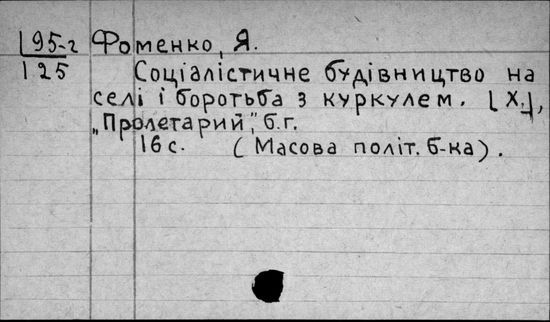 195-г Фоменко, Я.
125 Соціалістичне будівництво на
селі і боротьба з куркулем. [Х.],
„Пролетарий", б.г.
16 с. (Масова політ. б-ка).